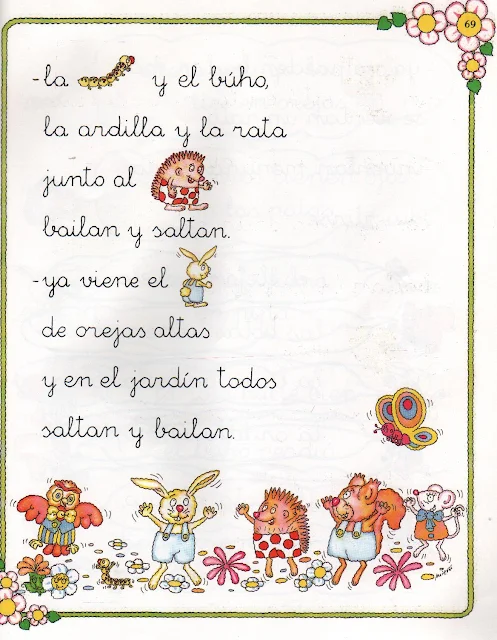 69
-la y el búho,
la ardilla y la rata
junto al
bailan y saltan.
-ya viene el
de orejas altas
y en el jardín todos
saltan y bailan.